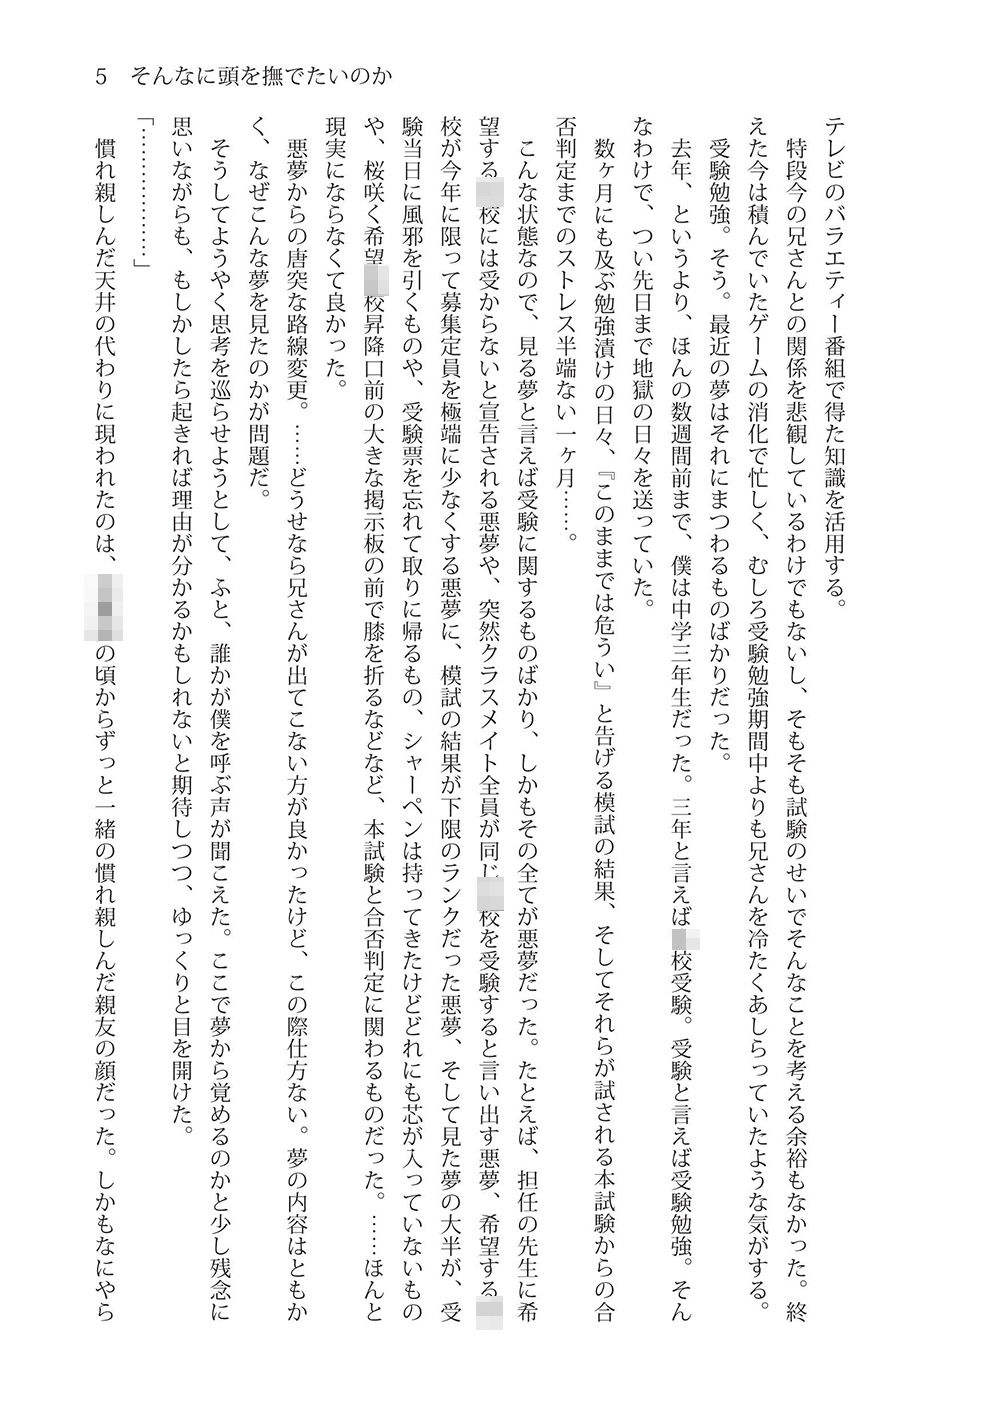 5 そんなに頭を撫でたいのか
テレビのバラエティー番組で得た知識を活用する。
特段今の兄さんとの関係を悲観しているわけでもないし、そもそも試験のせいでそんなことを考える余裕もなかった。終
えた今は積んでいたゲームの消化で忙しく、むしろ受験勉強期間中よりも兄さんを冷たくあしらっていたような気がする。
受験勉強。そう。最近の夢はそれにまつわるものばかりだった。
去年、というより、ほんの数週間前まで、僕は中学三年生だった。三年と言えば校受験。受験と言えば受験勉強。そん
なわけで、つい先日まで地獄の日々を送っていた。
数ヶ月にも及ぶ勉強漬けの日々、『このままでは危うい』と告げる模試の結果、そしてそれらが試される本試験からの合
否判定までのストレス半端ない一ヶ月……。
こんな状態なので、見る夢と言えば受験に関するものばかり、しかもその全てが悪夢だった。たとえば、担任の先生に希
望する校には受からないと宣告される悪夢や、突然クラスメイト全員が同じ校を受験すると言い出す悪夢、希望する
校が今年に限って募集定員を極端に少なくする悪夢に、模試の結果が下限のランクだった悪夢、そして見た夢の大半が、受
験当日に風邪を引くものや、受験票を忘れて取りに帰るもの、シャーペンは持ってきたけどどれにも芯が入っていないもの
や、桜咲く希望校昇降口前の大きな掲示板の前で膝を折るなどなど、本試験と合否判定に関わるものだった。……ほんと
現実にならなくて良かった。
悪夢からの唐突な路線変更。……どうせなら兄さんが出てこない方が良かったけど、この際仕方ない。夢の内容はともか
く、なぜこんな夢を見たのかが問題だ。
そうしてようやく思考を巡らせようとして、ふと、誰かが僕を呼ぶ声が聞こえた。ここで夢から覚めるのかと少し残念に
思いながらも、もしかしたら起きれば理由が分かるかもしれないと期待しつつ、ゆっくりと目を開けた。
「………………」
慣れ親しんだ天井の代わりに現われたのは、の頃からずっと一緒の慣れ親しんだ親友の顔だった。しかもなにやら